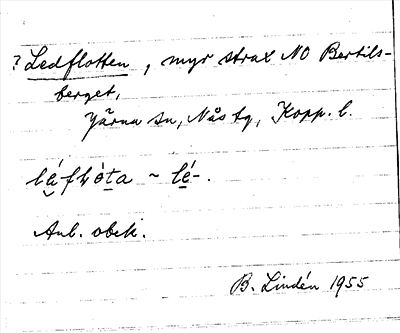 ? Ledflotten, myr strax NO Bertils-
berget,
Järna sn, Nås tg, Kopp. l.
lé̱fłòṯa ~ lé̱-.
Anl. obek.
B. Lindén 1955